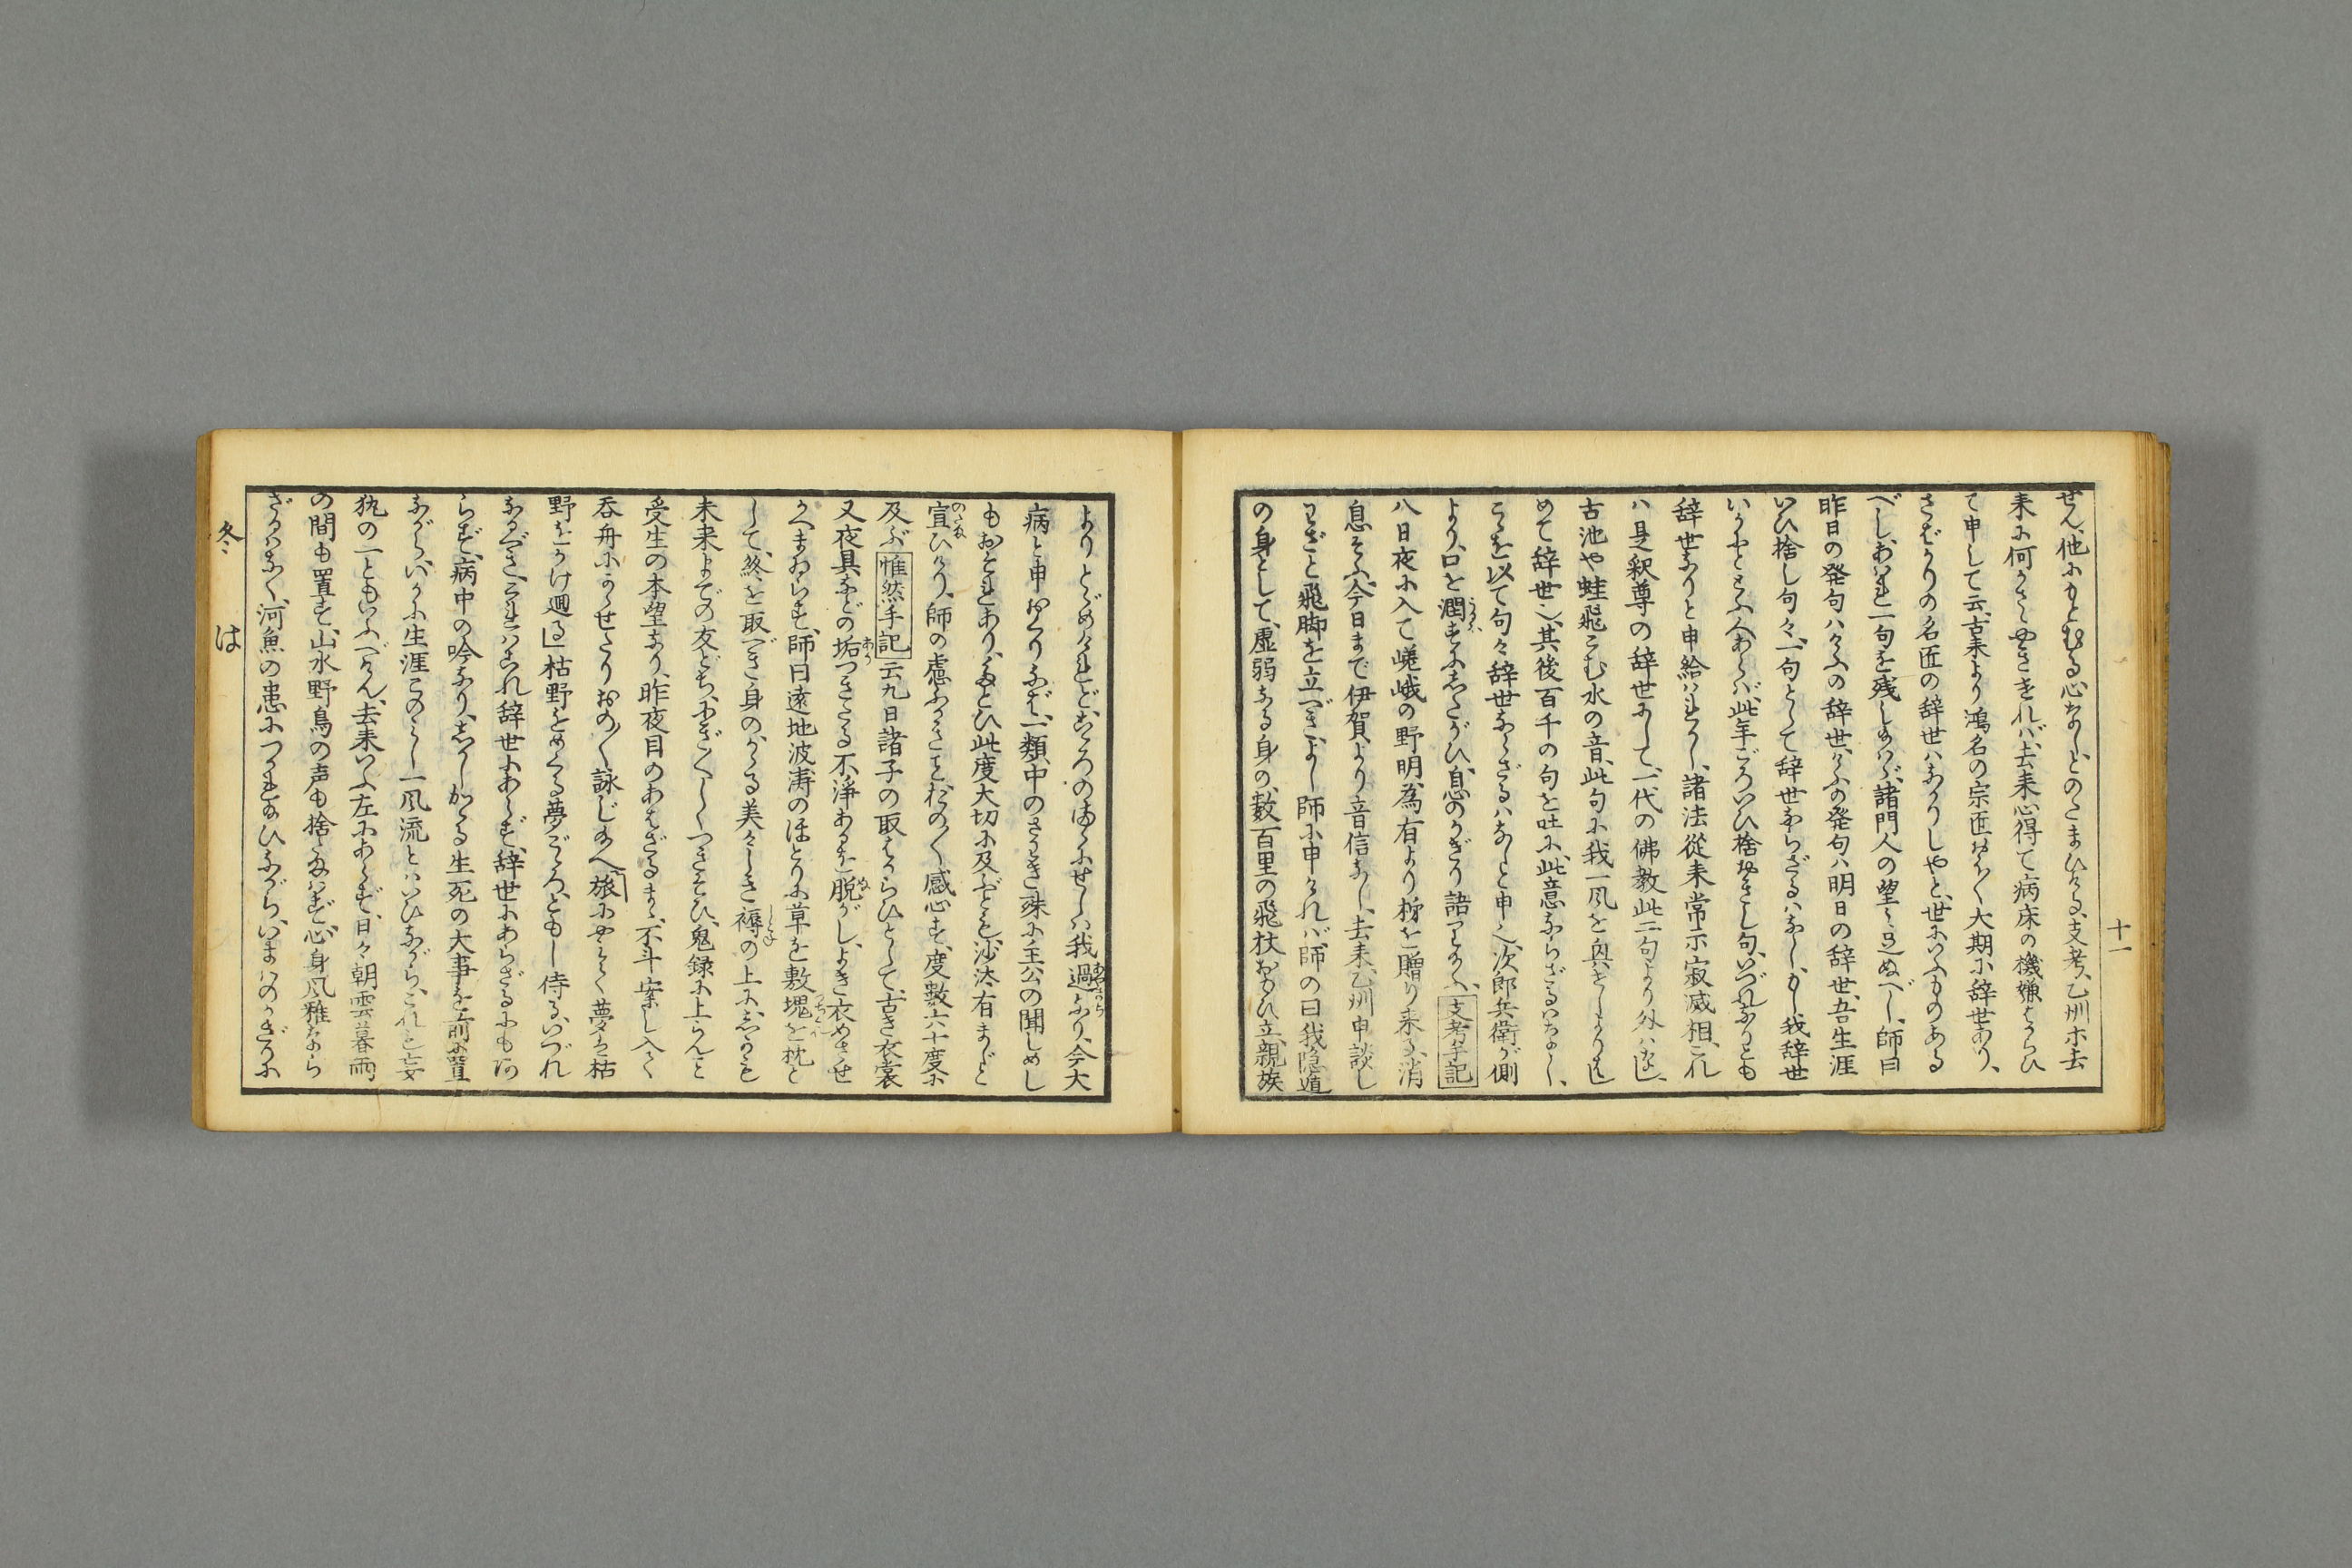 十一
ぜん、他にもとむる心なしとのたまひける、支考、乙州ホ去
来に何かさゝやきゝれバ、去来心得て病床の機嫌をはからひ
て申して云、古来より鴻名の宗匠おほく大期に辞世あり、
さばかりの名匠の辞世ハなかりしやと、世にいふものある
べし、あはれ一句を残したまハゞ、諸門人の望ミ足ぬべし、師曰
昨日の発句ハけふの辞世、けふの発句ハ明日の辞世、吾生涯
いひ捨し句々、一句として辞世ならざるハなし、もし我辞世
いかにととふ人あらバ、此年ごろいひ捨おきし句、いづれなりとも
辞世なりと申給はれかし、諸法従来常示寂滅相、これ
ハ是釈尊の辞世にして、一代の佛教此二句より外ハなし、
古池や蛙飛こむ水の音、此句に我一風を興せしより、はじ
めて辞世也、其後百千の句を吐に、此意ならざるハなし、
こゝを以て句々辞世ならざるハなしと申也、次郎兵衛が側
より、口を潤すにしたがひ、息のかぎり語りたまふ、支考手記
八日夜に入て嵯峨の野明、為有より柿を贈り来る、消
息そふ、今日まで伊賀より音信なし、去来、乙州申談し
わざと飛脚を立べきよし師に申ければ、師の曰我隠遁
の身として、虚弱なる身の、数百里の飛杖おもひ立、親族
よりとゞめけれど、こゝろのまゝにせしハ我過なり、今大
病と申おくりなば、一類中のさわぎ、殊に主公の聞しめし
もおそれあり、たとひ此度大切に及ぶとも、沙汰有まじと
宣ひけり、師の慮ふかきこと、おの〱感心す、度数六十度に
及ぶ惟然手記云九日諸子の取はからひとして、古き衣裳
又夜具などの垢つきたる不浄あるを脱がし、よき衣めさせ
かへまゐらす、師曰遠地波濤のほとりに草を敷、塊を枕と
して、終を取べき身の、かゝる美々しき褥の上に、しかも
未来までの友どち、にぎ〱しくつきそひ、鬼録に上らんこと
受生の本望なり、昨夜目のあはざるまゝ、不斗案じ入て
呑舟にかゝせたり、おの〱詠じたまへ「旅にやんで夢は枯
野をかけ廻る」枯野をめぐる夢ごゝろ、ともし侍る、いづれ
なるべき、これハこれ辞世にあらず、辞世にあらざるにもあ
らず、病中の吟なり、しかしかゝる生死の大事を前に置
ながら、いかに生涯このミし一風流とハいひながら、これも妄
執の一ともいふべけん、去来いふ左にあらず、日々朝雲暮雨
の間も置ず、山水野鳥の声も捨たまはず、心身風雅ならら
ざるハなく、河魚の患につかれたまひながら、いまハのかぎりに
冬
は